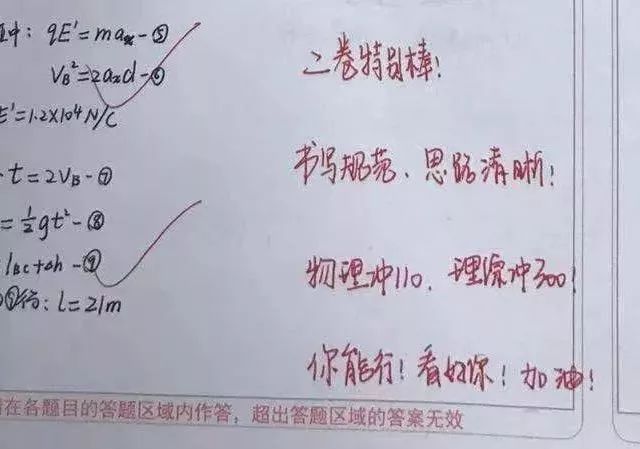 中: qE'=maₓ-⑤
V_B²=2aₓd-⑥
E'=1.2×10⁴N/C
t=2V_B-⑦
=½gt²-⑧
l_BC+Δh-⑨
⑨得: L=21m
二卷特别棒!
书写规范、思路清晰!
物理冲110、理综冲300!
你能行!看好你!加油!
在各题目的答题区域内作答，超出答题区域的答案无效